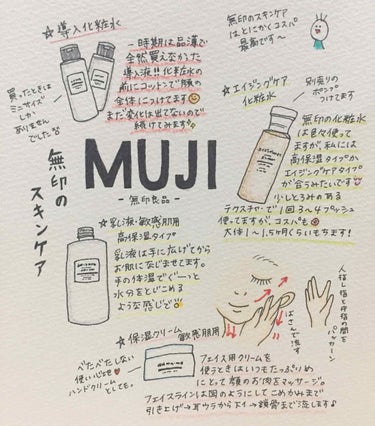 ☆導入化粧水
一時期は品薄で
全然買えなかった
導入液!!化粧水の
前にコットンで顔の
全体につけてます
まだ変化は出てないので
続けてみます
買ったときは
ミニサイズ
しか
ありません
でした
無印のスキンケア
は とにかくコスパ
最高です〜
☆エイジングケア
化粧水
別売りの
ポンプ
つけてます
無印の化粧水
は色々使って
ますが、私には
高保湿タイプか
エイジングケアタイプ
が合うみたいです
少しとろみのある
テクスチャーで1回3〜4プッシュ
使ってますが、コスパも
大体1〜1.5ヶ月くらいもちます!
MUJI
-無印良品-
無印の
スキンケア
☆乳液・敏感肌用
高保湿タイプ
乳液は手に広げてから
お肌になじませてます。
手の体温でぐーっと
水分をとじこめる
ような感じで
人指し指と中指の間を
パッカーン
はさんで流す
☆保湿クリーム 敏感肌用
べたべたしない
使い心地
ハンドクリーム
としても。
フェイス用クリームを
使うときはいつもたっぷりめ
にとって顔のお肉をマッサージ。
フェイスラインは図のようにしてこめかみまで
引き上げ→耳ウラからエイ→鎖骨まで流します♪